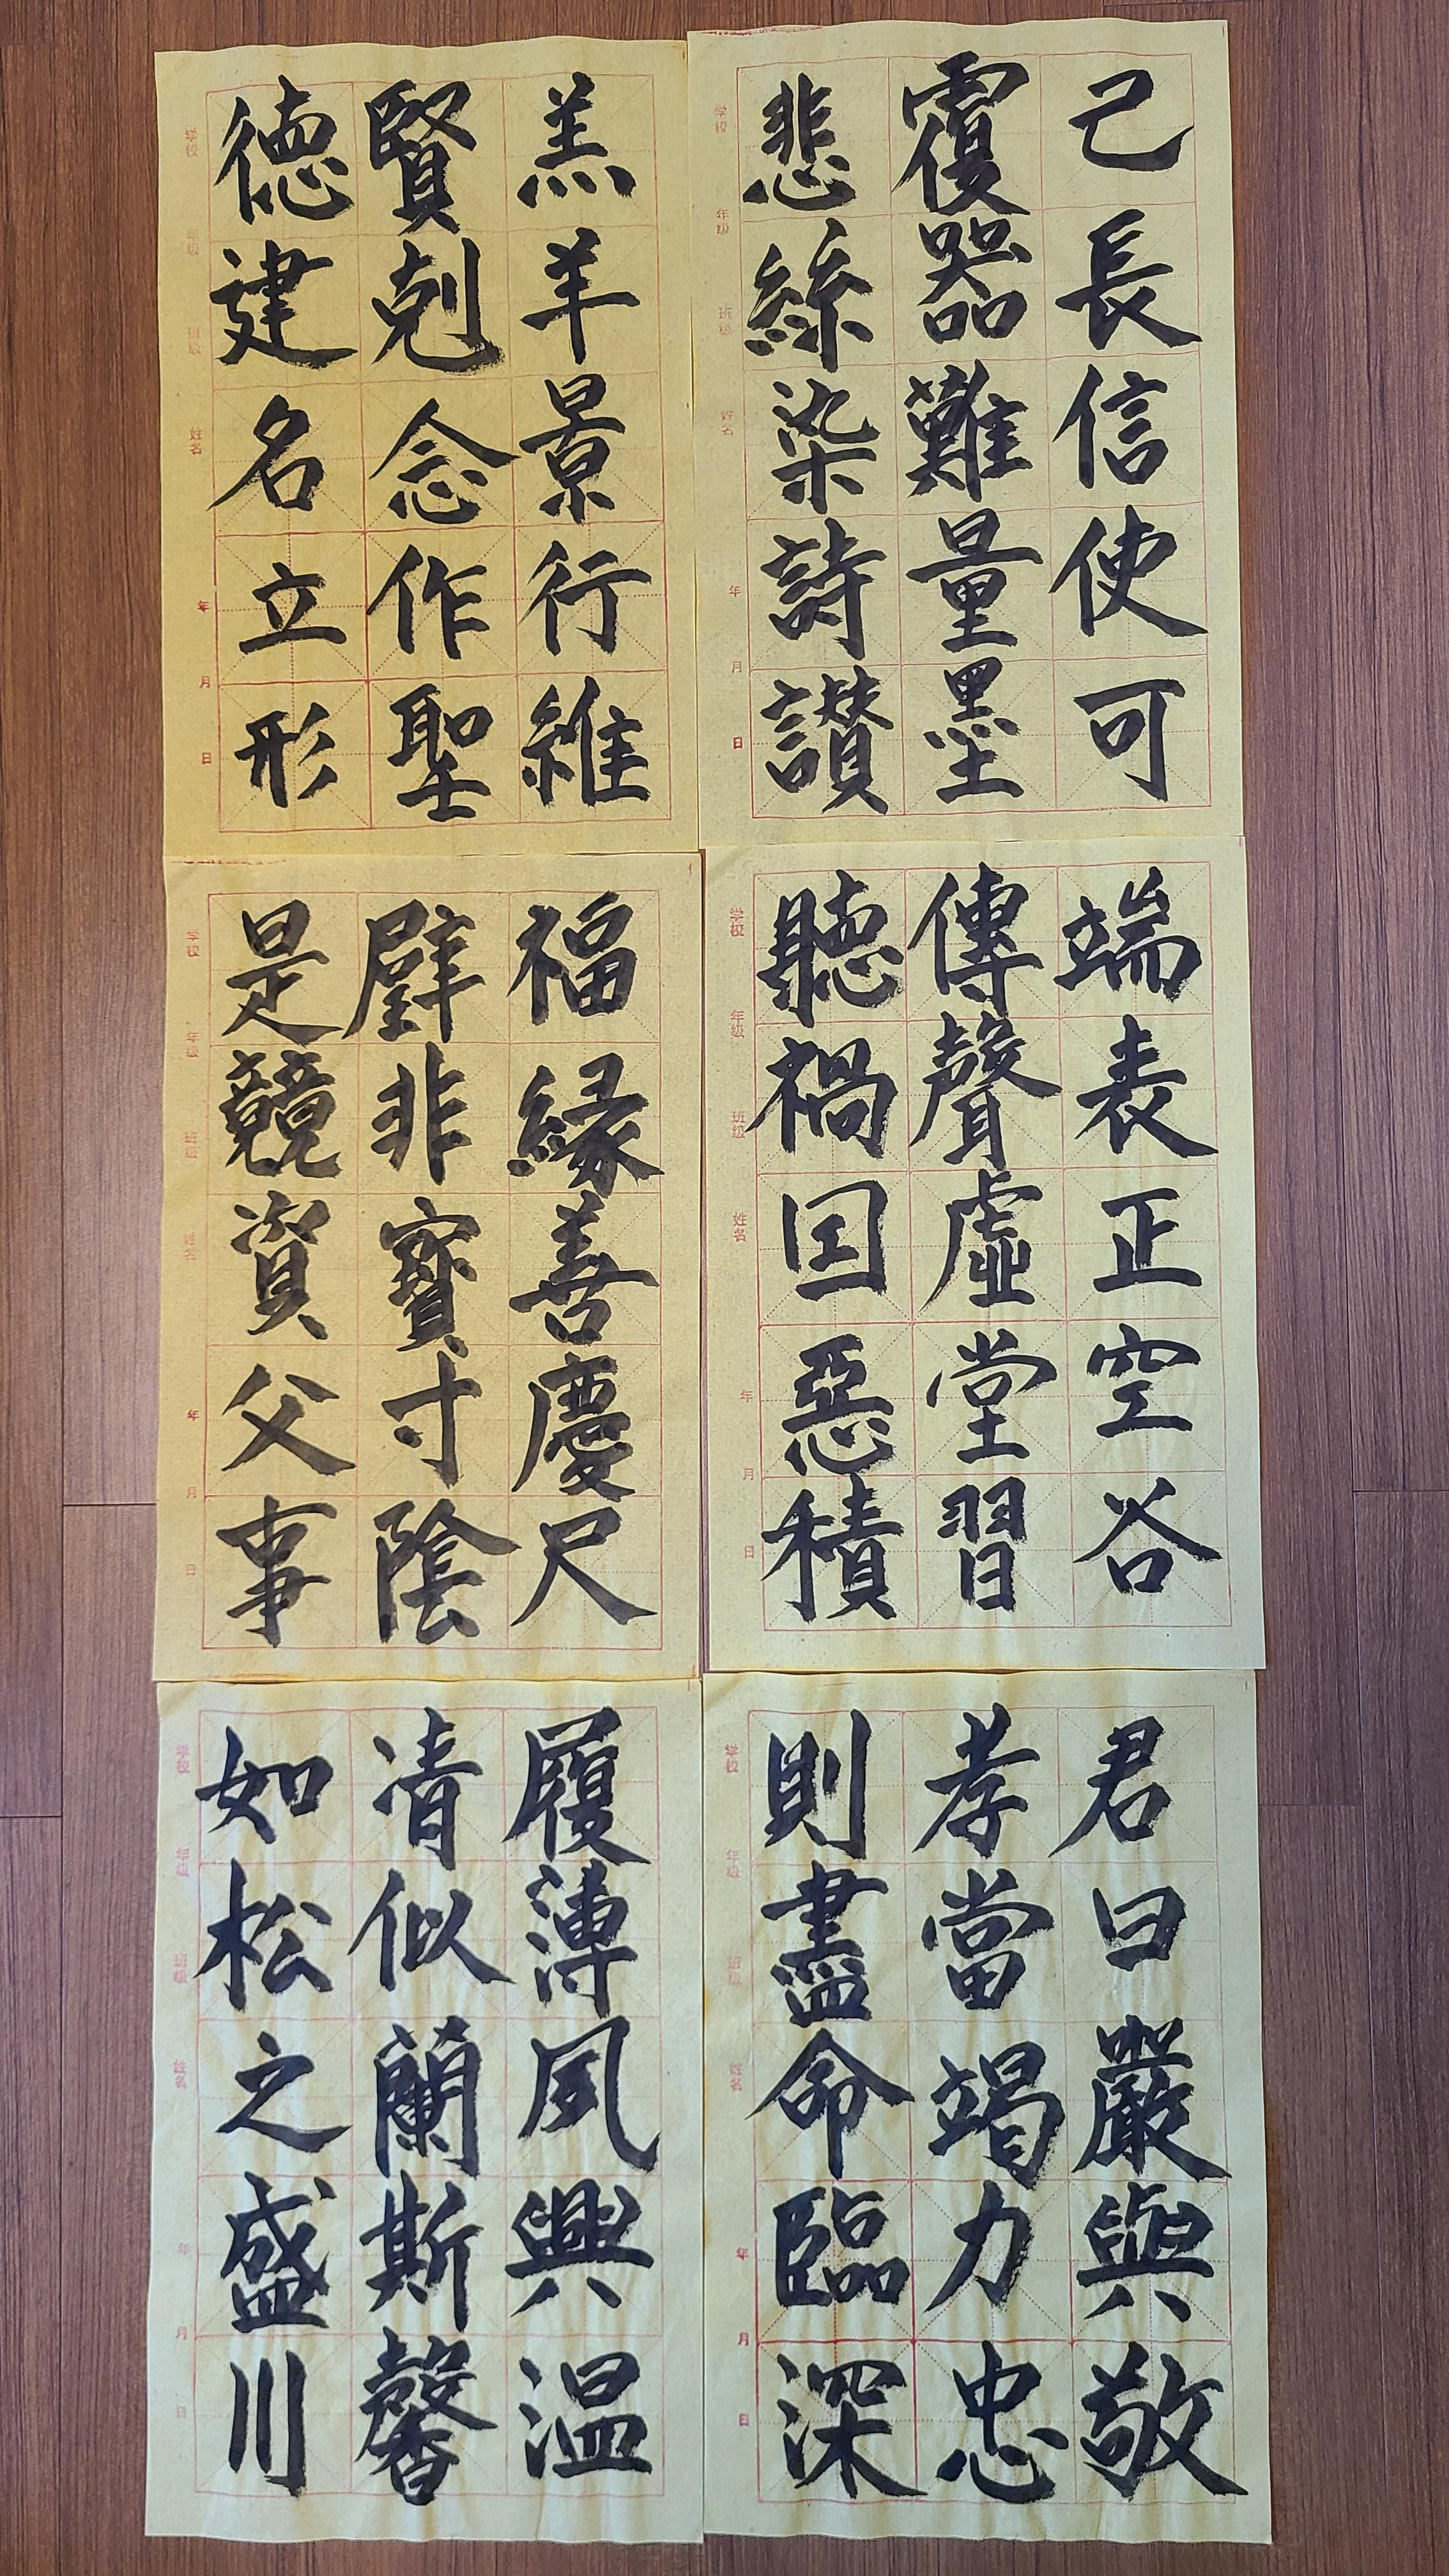 己長信使可
覆器難量墨
悲絲染詩讃
学校 年级 班级 姓名 年 月 日
羔羊景行維
賢剋念作聖
徳建名立形
学校 年级 班级 姓名 年 月 日
端表正空谷
傳聲虛堂習
聽禍囙惡積
学校 年级 班级 姓名 年 月 日
福縁善慶尺
璧非寶寸陰
是競資父事
学校 年级 班级 姓名 年 月 日
君曰嚴與敬
孝當竭力忠
則盡命臨深
学校 年级 班级 姓名 年 月 日
履薄夙興温
凊似蘭斯馨
如松之盛川
学校 年级 班级 姓名 年 月 日